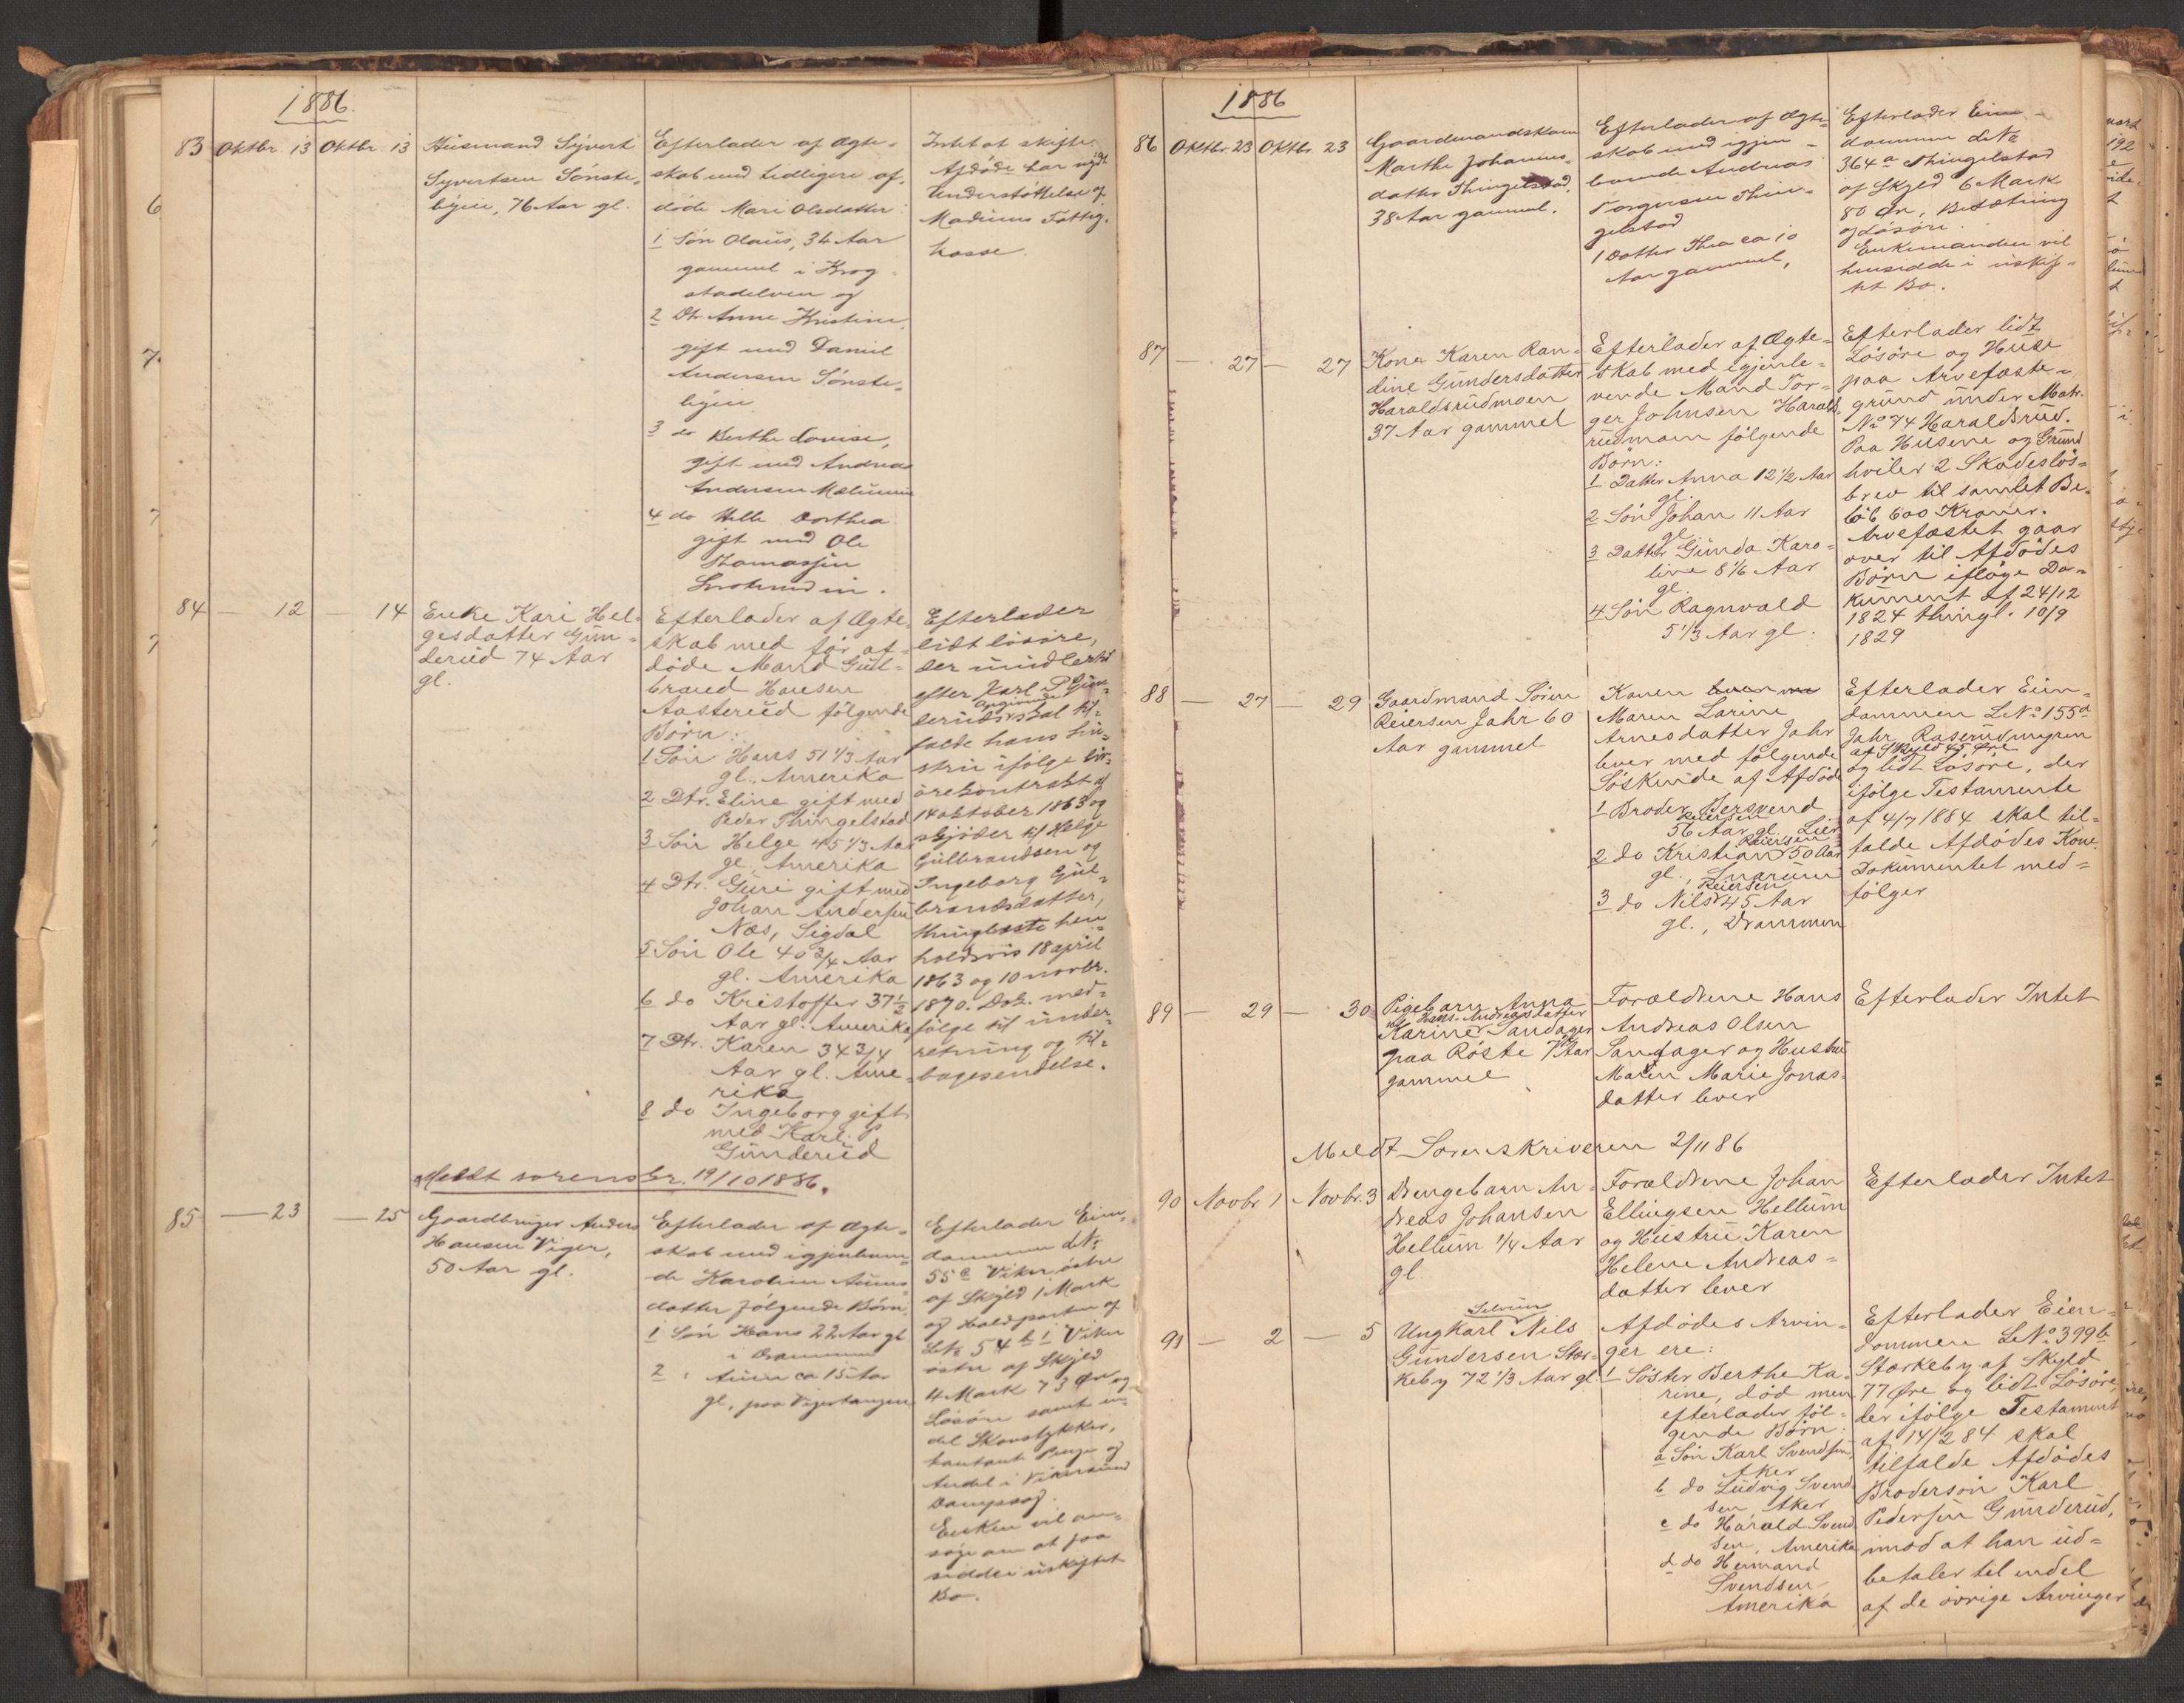 1886.
83 Oktbr. 13 Oktbr. 13
Husmand Syvert
Syvertsen Sønste-
byen, 76 Aar gl.
Efterlader af Ægte-
skab med tidligere af-
døde Mari Olsdatter:
1 Søn Olaus, 36 Aar
gammel i Krog-
stadelven og
2 Dtr Anne Kristine,
gift med Daniel
Andersen Sønste-
byen
3 do Berthe Lovise,
gift med Andreas
Andersen
4 do Helle Dorthea
gift med Ole
Thomassen
Intet at skifte.
Afdøde har nydt
Understøttelse af
Modums Fattig-
kasse.
84 — 12 — 14
Enke Kari Hel-
gesdatter Gun-
derud 74 Aar
gl.
Efterlader af Ægte-
skab med før af-
døde Mand Gul-
brand Hansen
Aasterud følgende
Børn:
1 Søn Hans 51 1/3 Aar
gl., Amerika
2 Dtr. Eline gift med
Peder Thingelstad
3 Søn Helge 45 1/3 Aar
gl., Amerika
4 Dtr. Guri gift med
Johan Andersen
Næs, Sigdal
5 Søn Ole 40 3/4 Aar
gl. Amerika
6 do Kristoffer 37 1/2
Aar gl. Amerika
7 Dtr. Karen 34 3/4
Aar gl. Ame-
rika
8 do Ingeborg gift
med Karl P
Gunderud
Efterlader
lidt løsøre,
der imidlertid
efter Karl P Gun-
deruds Opgivende skal til-
falde hans hu-
stru ifølge
kontrakt af
14 oktober 1863 og
skjøder til Helge
Gulbrandsen og
Ingeborg Gul-
brandsdatter,
thinglæste hen-
holdsvis 18 april
1863 og 10 novbr.
1870. Dok. med-
følge til under-
retning og til-
bagesendelse.
Meldt sorenskr. 19/10 1886.
85 — 23 — 25
Gaardbruger Anders
Hansen Viger,
50 Aar gl.
Efterlader af Ægte-
skab med igjenleven-
de Karoline
datter følgende Børn
1 Søn Hans 22 Aar gl
i Drammen
2 " ca 15 Aar
gl., paa Vigertangen
Efterlader Eien-
dommen LNo
55 c Viker østre
af Skyld 1 Mark
og Halvparten af
LNo 54 b 1 Viker
østre af Skyld
4 Mark 73 Øre og
Løsøre samt en
del Skovstykker,
kontant Penge og
Andel i Vikersund
Dampsag.
Enken vil an-
søge om at faa
sidde i uskiftet
Bo.
1886
86 Oktbr. 23 Oktbr. 23
Gaardmandskone
Marthe Johannes-
datter Thingelstad,
38 Aar gammel.
Efterlader af Ægte-
skab med igjen-
levende Andreas
Torgersen Thin-
gelstad
1 Datter Thea ca 10
Aar gammel,
Efterlader Eien-
dommen LNo
364 a Thingelstad
af Skyld 6 Mark
80 Øre, Besætning
og Løsøre.
Enkemanden vil
hensidde i uskif-
tet Bo.
87 — 27 — 27
Kone Karen Ran-
dine Gundersdatter
Haraldsrudmoen
37 Aar gammel
Efterlader af Ægte-
skab med igjenle-
vende Mand Tor-
ger Johnsen Harald-
rudmoen følgende
Børn:
1 Datter Anna 12 1/2 Aar
gl.
2 Søn Johan 11 Aar
gl.
3 Datter Gunda Karo-
line 8 1/6 Aar
gl.
4 Søn Ragnvald
5 1/3 Aar gl:
Efterlader lidt
Løsøre og Huse
paa Arvefæste-
grund under Matr.
No 74 Haraldsrud.
Paa Husene og Grund
hviler 2 Skadesløs-
brev til samlet Be-
løb 600 Kroner.
Arvefæstet gaar
over til Afdødes
Børn ifløge Do-
kument af 24/12
1824 thingl. 10/9
1829
88 — 27 — 29
Gaardmand Søren
Reiersen Jahr 60
Aar gammel
Konen
Maren Larine
Arnesdatter Jahr
lever med følgende
Søskende af Afdøde
1 Broder Bersvend
Reiersen
56 Aar gl. Lier
2 do Kristian Reiersen 50 Aar
gl., Snarum
3 do Nils Reiersen 45 Aar
gl., Drammen
Efterlader Eien-
dommen LNo 155 d
Jahr Raserudmyren
af Skyld 45 Øre
og lidt Løsøre, der
ifølge Testamente
af 4/7 1884 skal til-
falde Afdødes Kone.
Dokumentet med-
følger
89 — 29 — 30
Pigebarn Anna
Karine Hans-Andreasdatter Sandager
paa Røste 7 Aar
gammel
Forældrene Hans
Andreas Olsen
Sandager og Hustru
Maren Marie Jonas-
datter lever
Efterlader Intet
Meldt Sorenskriveren 2/11 86
90 Novbr 1 Novbr. 3
Drengebarn An-
dreas Johansen
Hellum 1/4 Aar
gl
Forældrene Johan
Ellingsen Hellum
og Hustru Karen
Helene Andreas-
datter lever
Efterlader Intet
91 — 2 — 5
Ungkarl Nils
Gundersen Stær-
keby 72 1/3 Aar gl
Afdødes Arvin-
ger ere:
1 Søster Berthe Ka-
rine, død men
efterlader føl-
gende Børn:
a Søn Karl Svendsen,
Aker
b do Ludvig Svend-
sen Aker
c do Harald Svend-
sen, Amerika
d do Hermand
Svendsen
Amerika
Efterlader Eien-
dommen LNo 399 b
Stærkeby af Skyld
77 Øre og lidt Løsøre,
der ifølge Testament
af 14/2 84 skal
tilfalde Afdødes
Brodersøn Karl
Pedersen Gunderud,
mod at han ud-
betaler til endel
af de øvrige Arvinger